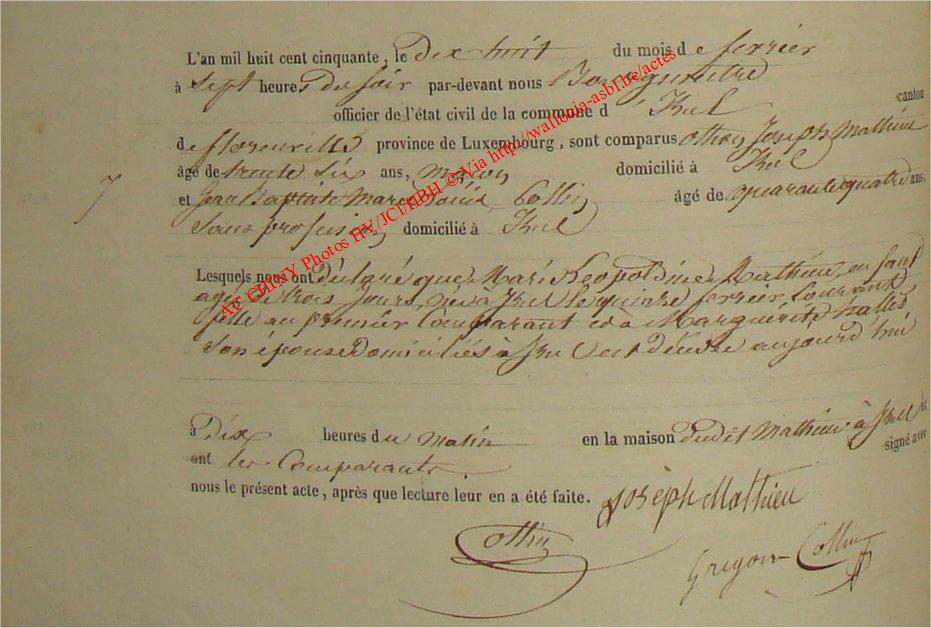 L'an mil huit cent cinquante, le dix huit du mois de fevrier
à sept heures du soir par-devant nous Bourgumetre
officier de l'état civil de la commune d'Izel canton
de florenville province de Luxembourg, sont comparus Joseph Mathieu
âgé de trente six ans, maçon domicilié à Izel
et Jean Baptiste Collin âgé de quarante quatre ans,
Sans profession domicilié à Izel
Lesquels nous ont déclaré que Marie Leopoldine Mathieu, enfant
agée de trois jours, née à Izel le quinze fevrier courant,
fille au premier Comparant et à Marguerite
Son épouse Domiciliés à Izel est décédée aujourd'hui
à Dix heures du matin en la maison dudit Mathieu à Izel et
ont les Comparants signé avec
nous le présent acte, après que lecture leur en a été faite.
Joseph Mathieu
Collin
Gregoire Collin
7
Ac CHINY Photos HV/JCI/HBH © Via http://wallonia-asbl.be/actes